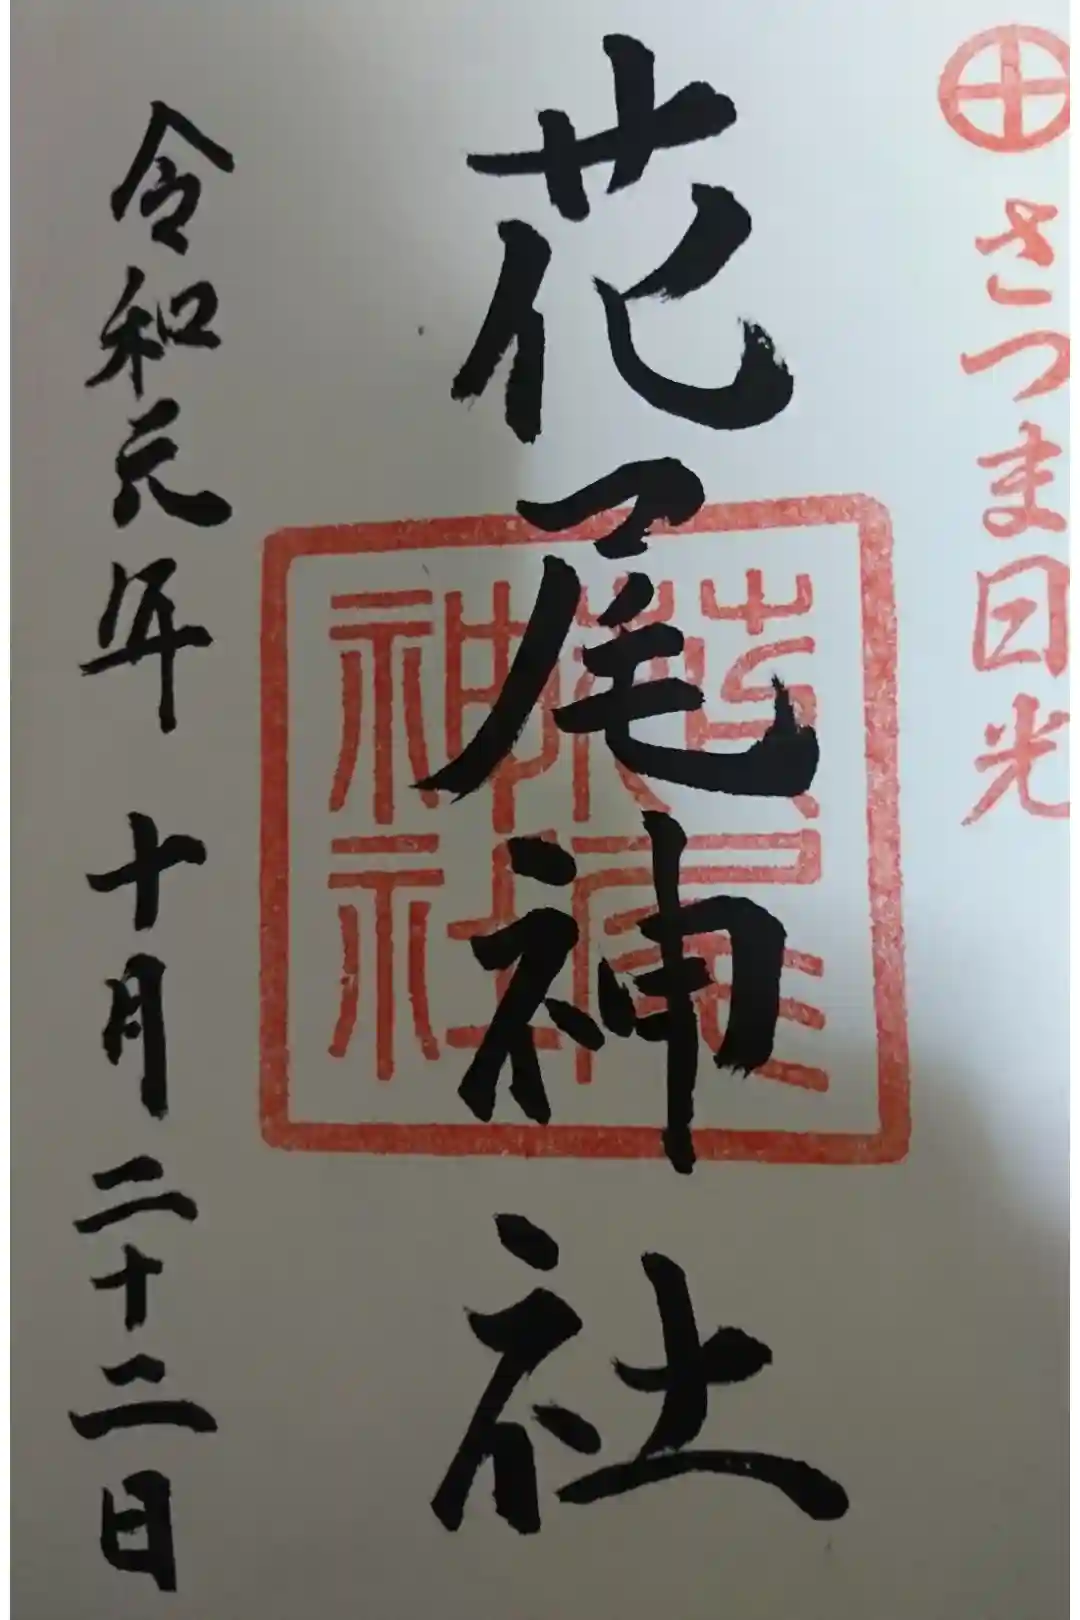 さつま日光
花尾神社
花尾神社
令和元年 十月 二十二日